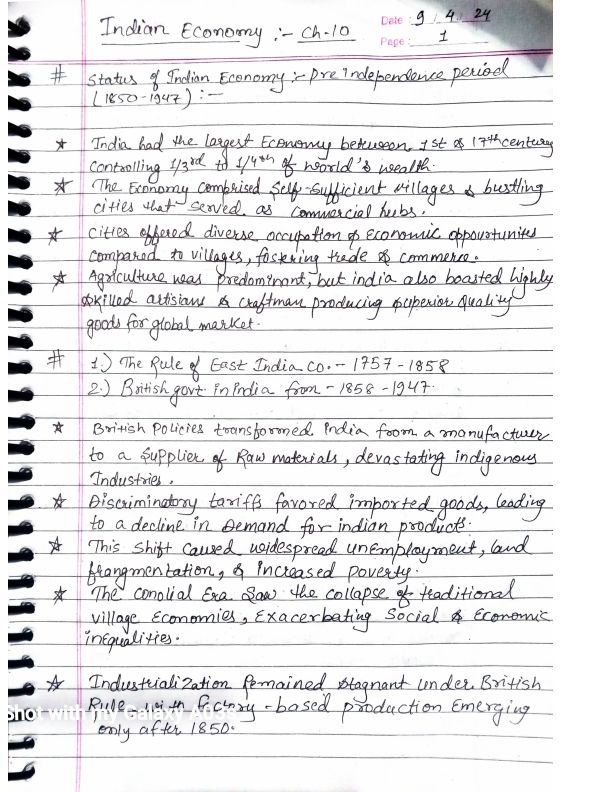 Indian Economy :- Ch-10
Date : 9 / 4 / 24
Page : 1
# Status of Indian Economy :- Pre Independence period
(1850-1947) :-
★ India had the largest Economy between 1st & 17th century
Controlling 1/3rd to 1/4th of world's wealth.
★ The Economy comprised Self-Sufficient villages & bustling
cities that served as commercial hubs.
★ Cities offered diverse occupation & Economic oppourtunites
compared to villages, fostering trade & commerce.
★ Agriculture was predominant, but india also boasted highly
skilled artisians & craftman producing superior Quality
goods for global market.
# 1.) The Rule of East India Co. - 1757-1858
2.) British govt in India from - 1858-1947.
★ British Policies transformed India from a manufacturer
to a Supplier of Raw materials, devastating indigenous
Industries.
★ Discriminatory tariffs favored imported goods, leading
to a decline in Demand for indian products.
★ This shift caused widespread unemployment, land
frangmentation, & increased poverty.
★ The conolial Era Saw the collapse of traditional
village Economies, Exacerbating Social & Economic
inequalities.
★ Industrialization remained stagnant under British
Rule with factory-based production Emerging
only after 1850.
Shot with my Galaxy A03s